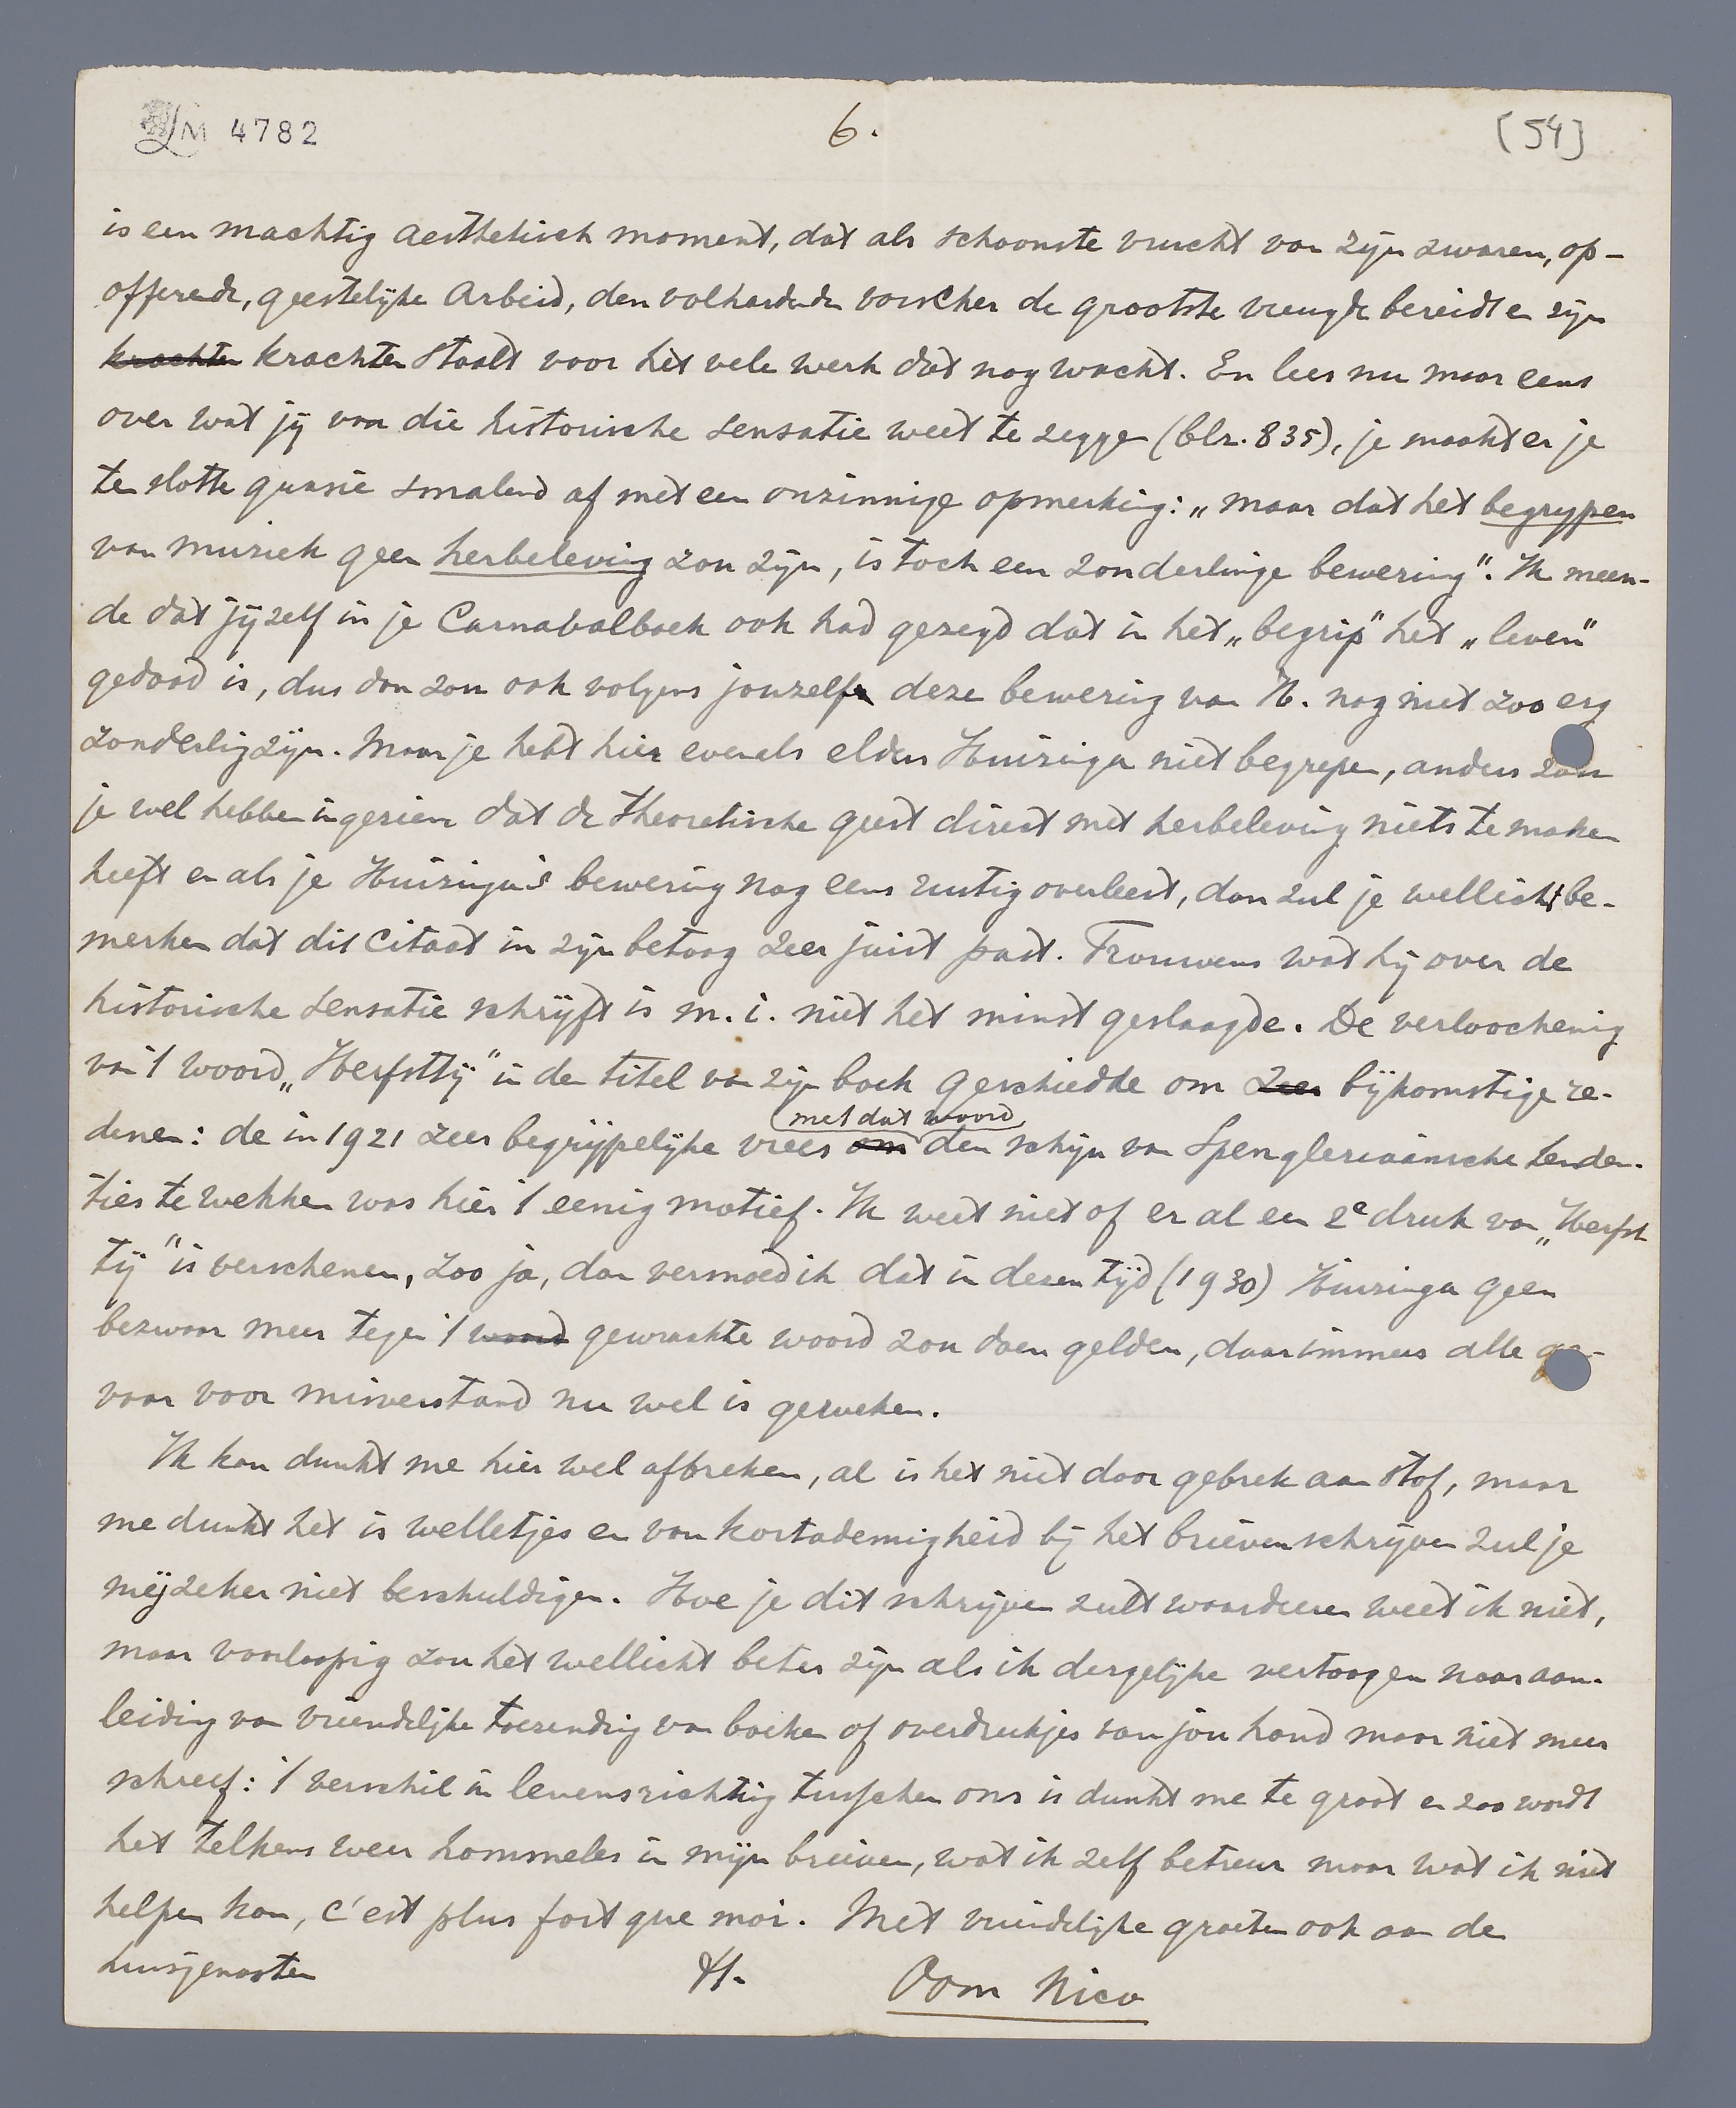 LM 4782
6.
[54]
is een machtig aesthetisch moment, dat als schoonste vrucht van zijn zwaren, op-
offerende, geestelijke arbeid, den volhardende vorscher de grootste vreugde bereidt en zijn
krachten krachten staalt voor het vele werk dat nog wacht. En lees nu maar eens
over wat jij van die historische sensatie weet te zeggen (blz. 835), je maakt er je
ten slotte quasie smalend af met een onzinnige opmerking: „maar dat het begrypen
van muziek geen herbeleving zou zijn, is toch een zonderlinge bewering". Ik meen-
de dat jijzelf in je Carnavalboek ook had gezegd dat in het „begrip" het „leven"
gedood is, dus dan zou ook volgens jouzelf deze bewering van H. nog niet zoo erg
zonderling zijn. Maar je hebt hier evenals elders Huizinga niet begrepen, anders zou
je wel hebben ingezien dat de theoretische geest direct met herbeleving niets te maken
heeft en als je Huizinga's bewering nog eens rustig overleest, dan zul je wellicht be-
merken dat dit citaat in zijn betoog zeer juist past. Trouwens wat hij over de
historische sensatie schrijft is m.i. niet het minst geslaagde. De verloochening
van 't woord „Herfsttij" in den titel van zijn boek geschiedde om zeer bijkomstige re-
denen: de in 1921 zeer begrijpelijke vrees om met dat woord den schijn van Spengleriaansche tenden-
ties te wekken was hier 't eenig motief. Ik weet niet of er al een 2e druk van „Herfst
tij" is verschenen, zoo ja, dan vermoed ik dat in dezen tijd (1930) Huizinga geen
bezwaar meer tegen 't woord gewraakte woord zou doen gelden, daar immers alle ge-
vaar voor misverstand nu wel is geweken.
Ik kan dunkt me hier wel afbreken, al is het niet door gebrek aan stof, maar
me dunkt het is welletjes en van kortademigheid bij het brievenschrijven zul je
mij zeker niet beschuldigen. Hoe je dit schrijven zult waardeeren weet ik niet,
maar voorloopig zou het wellicht beter zijn als ik dergelijke vertoogen naar aan-
leiding van vriendelijke toezending van boeken of overdrukjes van jou hand maar niet meer
schreef: 't verschil in levensrichting tusschen ons is dunkt me te groot en zoo wordt
het telkens weer hommeles in mijn brieven, wat ik zelf betreur maar wat ik niet
helpen kan, c'est plus fort que moi. Met vriendelijke groeten ook aan de
huisgenooten
tt.
Oom Nico